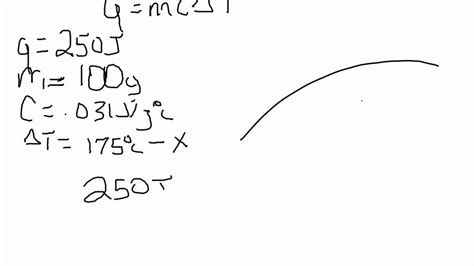 q = mCΔT
q = 250J
m₁ = 100g
C = .031J/g°C
ΔT = 175°C - X
250J